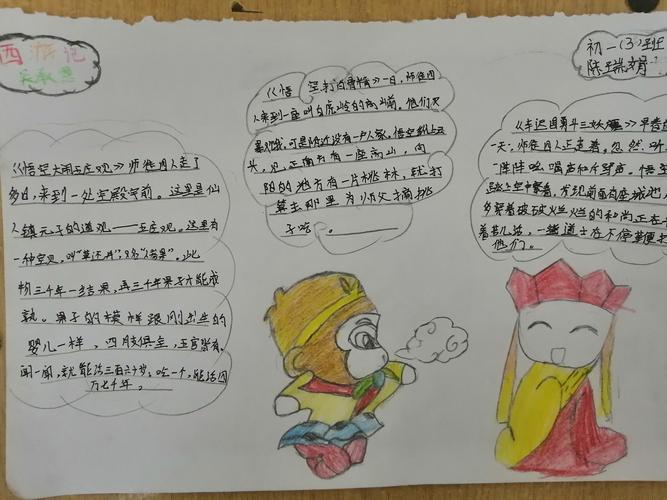 西游记
初一(3)班
《悟空大闹五庄观》师徒四人走了
多日,来到一处宝殿前。这里是仙
人镇元子的道观——五庄观。这里有
一种宝贝,叫"草还丹",又名"人参果"。此
物三千年一结果,再三千年果子才能成
熟。果子的模样跟刚出生的
婴儿一样,四肢俱全,五官皆有,
闻一闻,就能活三百六十岁,吃一个,能活四
万七千年。
《悟 空打白骨精》一日,师徒四
人来到一座叫白虎岭的高山前。他们又
累又饿,可是附近没有一户人家,悟空跳上云
头,见正南方有一座高山,向
阳的地方有一片桃林,就打
算去那里为师父摘桃
子吃。
《车迟国勇斗三妖魔》早春的
一天,师徒四人正走着,忽然听
一阵阵吆喝声和斤穿声。悟空
跳上空中察看,发现前面有座城池,
多穿着破破烂烂的和尚正在
着干活,一些道士在不停鞭打
他们。